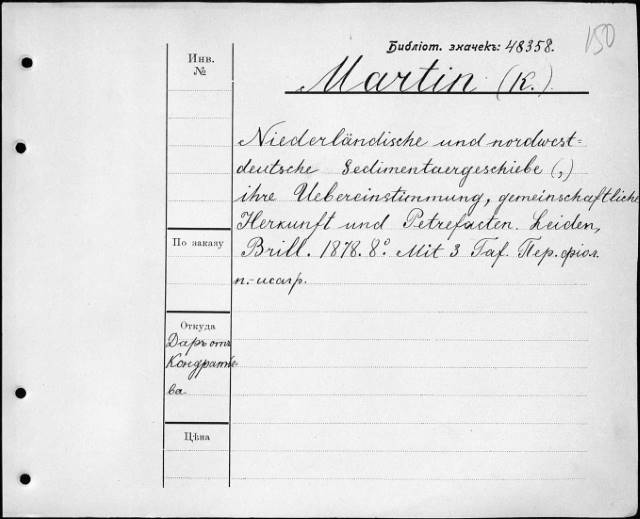 150
Библіот. значекъ: 48358.
Martin (K.)
Инв.
№
Niederländische und nordwest=
deutsche Sedimentaergeschiebe (,)
ihre Uebereinstimmung, gemeinschaftliche
Herkunft und Petrefacten. Leiden,
Brill. 1878. 8º. Mit 3 Taf. Пер. фіол.
По заказу
Откуда
Даръ отъ
Кондратье-
ва
Цѣна